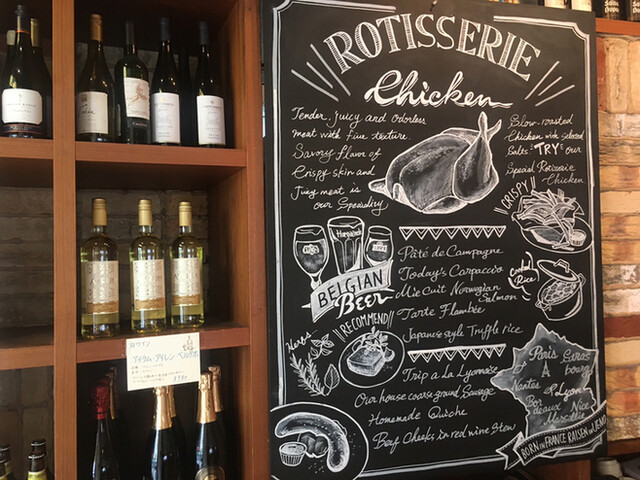 ROTISSERIE
Chicken
Tender, juicy and odorless
meat with fine texture.
Savory flavor of
Crispy skin and
Juicy meat is
our Speciality
Slow-roasted
Chicken with selected
Salts. TRY our
Special Rotisserie
Chicken
CRISPY
BELGIAN
Beer
RECOMMEND
Herbs
Pâté de Campagne
Today's Carpaccio
Mi Cuit Norwegian
Salmon
Tarte Flambée
Japanese style Truffle rice
Cooked
Rice
Trip a La Lyonaise
Our house coarse ground Sausage
Homemade Quiche
Beef Cheeks in red wine Stew
Paris
Nantes
Lyon
Bor
deaux
Nice
Marseille
BORN IN FRANCE RAISED IN
白ワイン